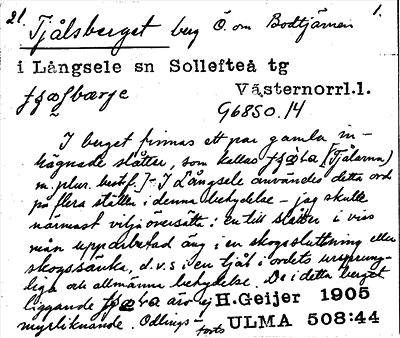 21. Tjålsberget berg Ö. om Bodtjärnen 1.
i Långsele sn Sollefteå tg
Västernorrl.l.
G6850.14
I berget finnas ett par gamla in-
hägnade slåtter, som kallas (Tjålarna)
m. plur. best. f.]- I Långsele användes detta ord
på flera ställen i denna betydelse - jag skulle
närmast vilja översätta: en till slåtter i viss
mån uppodlad äng i en skogssluttning eller
skogssänka, d.v.s i en tjål i ordets ursprung-
liga och allmänna betydelse. De i detta berget
liggande äro ej H.Geijer 1905
myrliknande. Odlings- ULMA 508:44